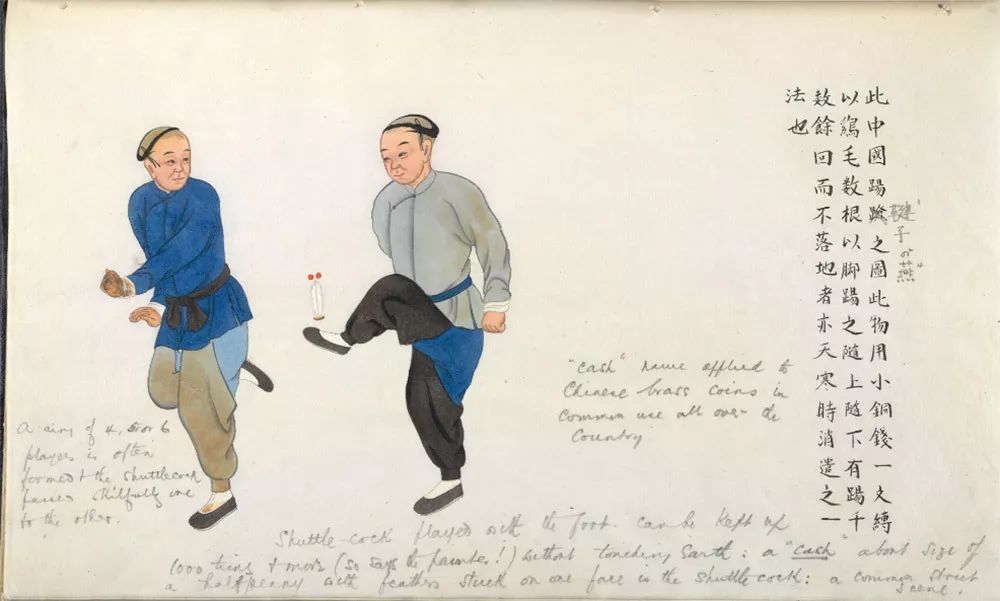 此中國踢之圖此物用小銅錢一文縛
以鷄毛数根以脚踢之隨上隨下有踢千
数餘回而不落地者亦天寒時消遣之一
法也
毽子 "燕"
"Cash" name applied to
Chinese brass coins in
common use all over the
Country
A ring of 4, 5 or 6
players is often
formed & the shuttlecock
passed skilfully one
to the other.
Shuttle-cock played with the foot. can be kept up
1000 times & more (so says the painter!) without touching Earth: a "cash" about size of
a halfpenny with feathers stuck on one face is the shuttle cock: a common street
scene.